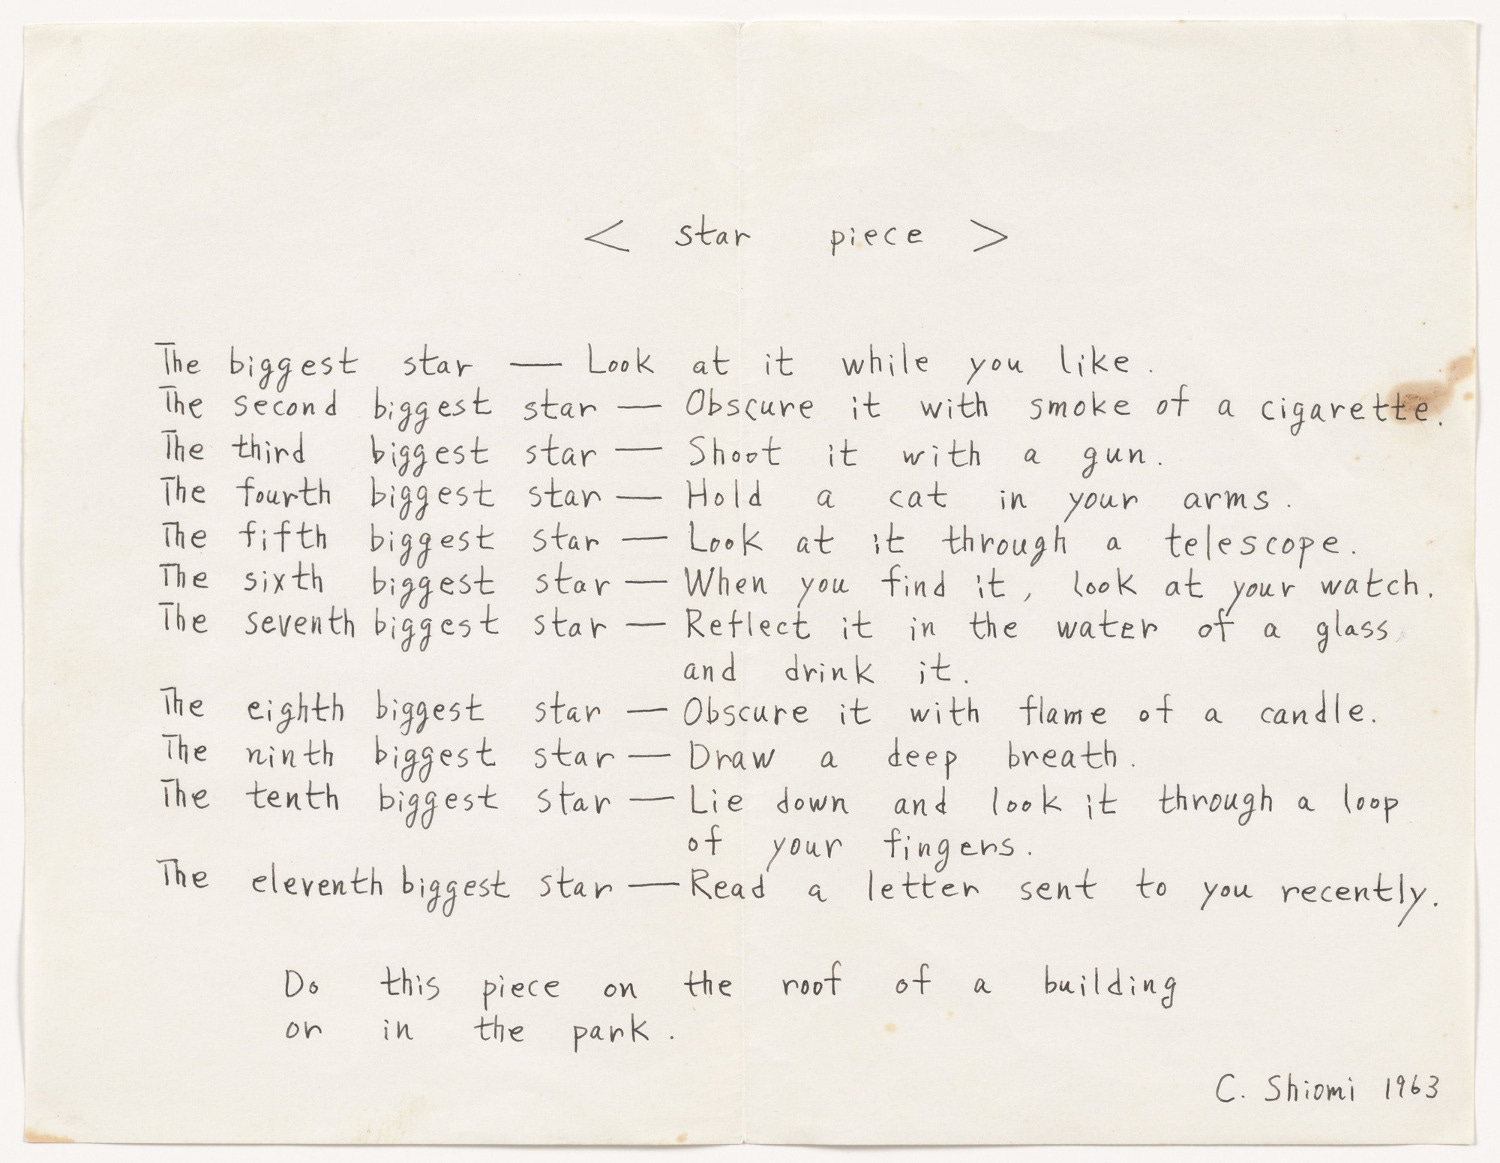 < star piece >
The biggest star — Look at it while you like.
The second biggest star — Obscure it with smoke of a cigarette.
The third biggest star — Shoot it with a gun.
The fourth biggest star — Hold a cat in your arms.
The fifth biggest star — Look at it through a telescope.
The sixth biggest star — When you find it, look at your watch.
The seventh biggest star — Reflect it in the water of a glass
and drink it.
The eighth biggest star — Obscure it with flame of a candle.
The ninth biggest star — Draw a deep breath.
The tenth biggest star — Lie down and look it through a loop
of your fingers.
The eleventh biggest star — Read a letter sent to you recently.
Do this piece on the roof of a building
or in the park.
C. Shiomi 1963